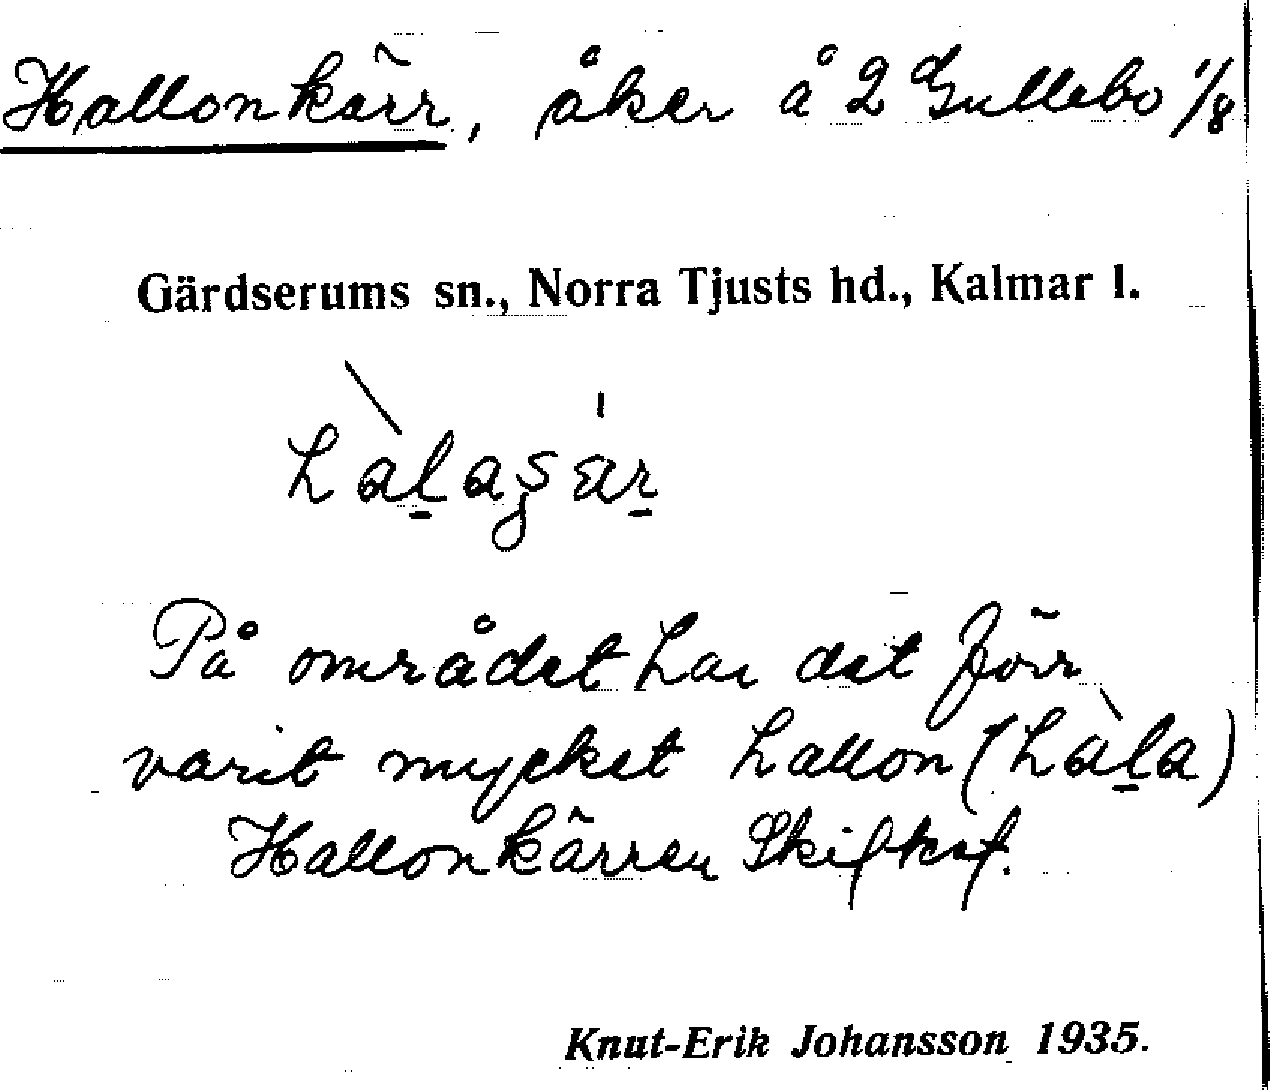 Hallonkärr, åker å 2 Gullebo 1/8
Gärdserums sn., Norra Tjusts hd., Kalmar l.
På området har det förr
varit mycket hallon (hàla)
Hallonkärren Skifteskt.
Knut-Erik Johansson 1935.